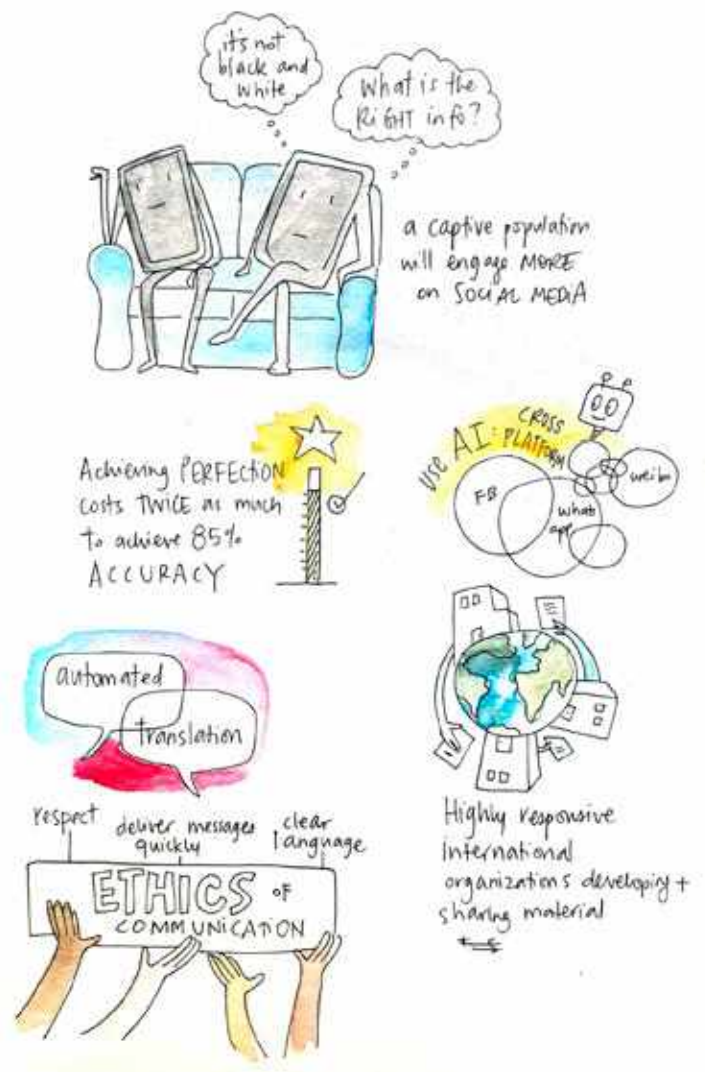 it's not
black and
white
What is the
RiGHT info?
a captive population
will engage MORE
on SOCIAL MEDIA
Achieving PERFECTION
costs TWICE as much
to achieve 85%
ACCURACY
USE AI: CROSS
PLATFORM
FB
whats
app
weibo
automated
translation
respect
deliver messages
quickly
clear
language
ETHICS OF
COMMUNICATION
Highly responsive
international
organizations developing +
sharing material